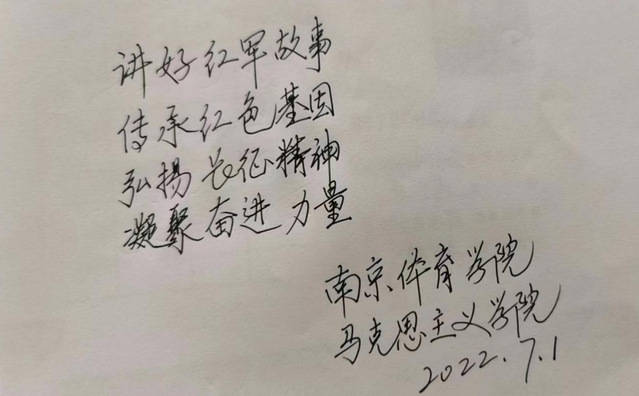 讲好红军故事
传承红色基因
弘扬长征精神
凝聚奋进力量
南京体育学院
马克思主义学院
2022.7.1